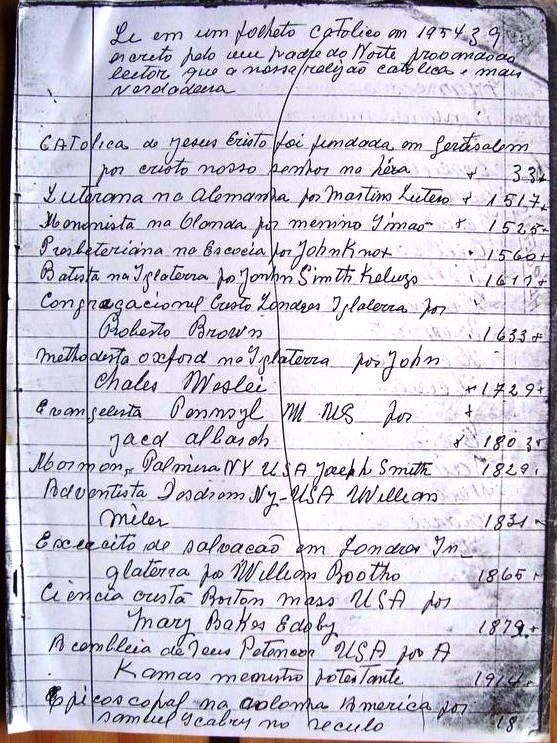 Li em um folheto catolico em 1954 39
escreto pelo um padre do Norte provando ao
lector que a nossa religião catolica e mais
verdadeira
CAtolica de Jesus Cristo foi fundada em Gerusalem
por cristo nosso senhor na hera + 33+
Luterana na Alemanha por Martins Lutero + 1517+
Mononista na Olanda por menino Simao + 1525+
Presbeteriana na Escocia por John Knox 1560+
Batista na Iglaterra por Jonhn Smith 1611+
Congregacionel Cristo Londres Iglaterra por
Roberto Brown 1633+
Methodista oxford na Iglaterra por John
Chales Weslei +1729+
Evangelista Pennsyl M US por +
Jacd albasch + 1803+
Mormon, Palmira NY USA Joseph Smith 1829
Adventista NY-USA William
Miler 1831
Exercito de salvacão em Londres In_
glaterra por William Bootho 1865+
Ciencia cristã Borton mass USA por
Mary Bakes Edoby 1879+
Acembleia de Deus USA por A
Kamas menistro potestante 1914+
Epicoscopal na colonia America por
Samuel Scabry no seculo 18